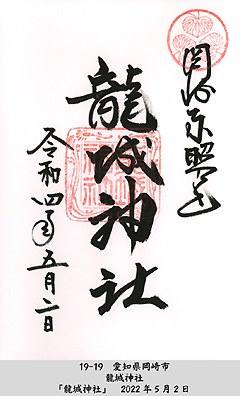 岡崎東照宮
龍城神社
令和四年五月二日
19-19 愛知県岡崎市
龍城神社
「龍城神社」 2022年5月2日